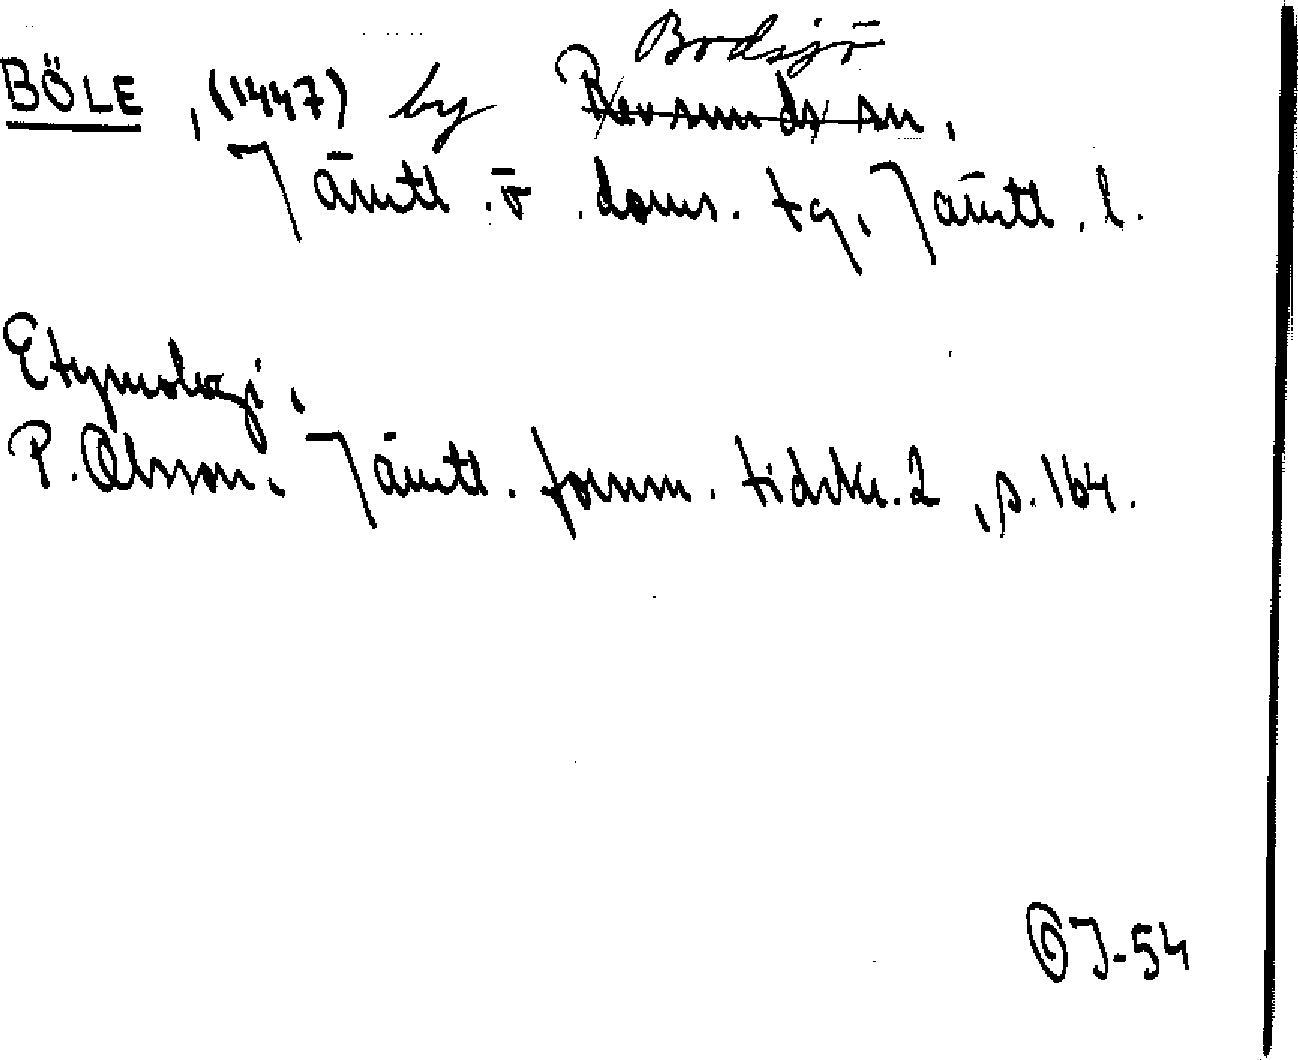 Bodsjö
BÖLE, (1447) by Revsunds sn,
Jämtl. ö. doms. tg, Jämtl. l.
Etymologi.
P. Olsson. Jämtl. fornm. tidskr. 2, s. 164.
J-54